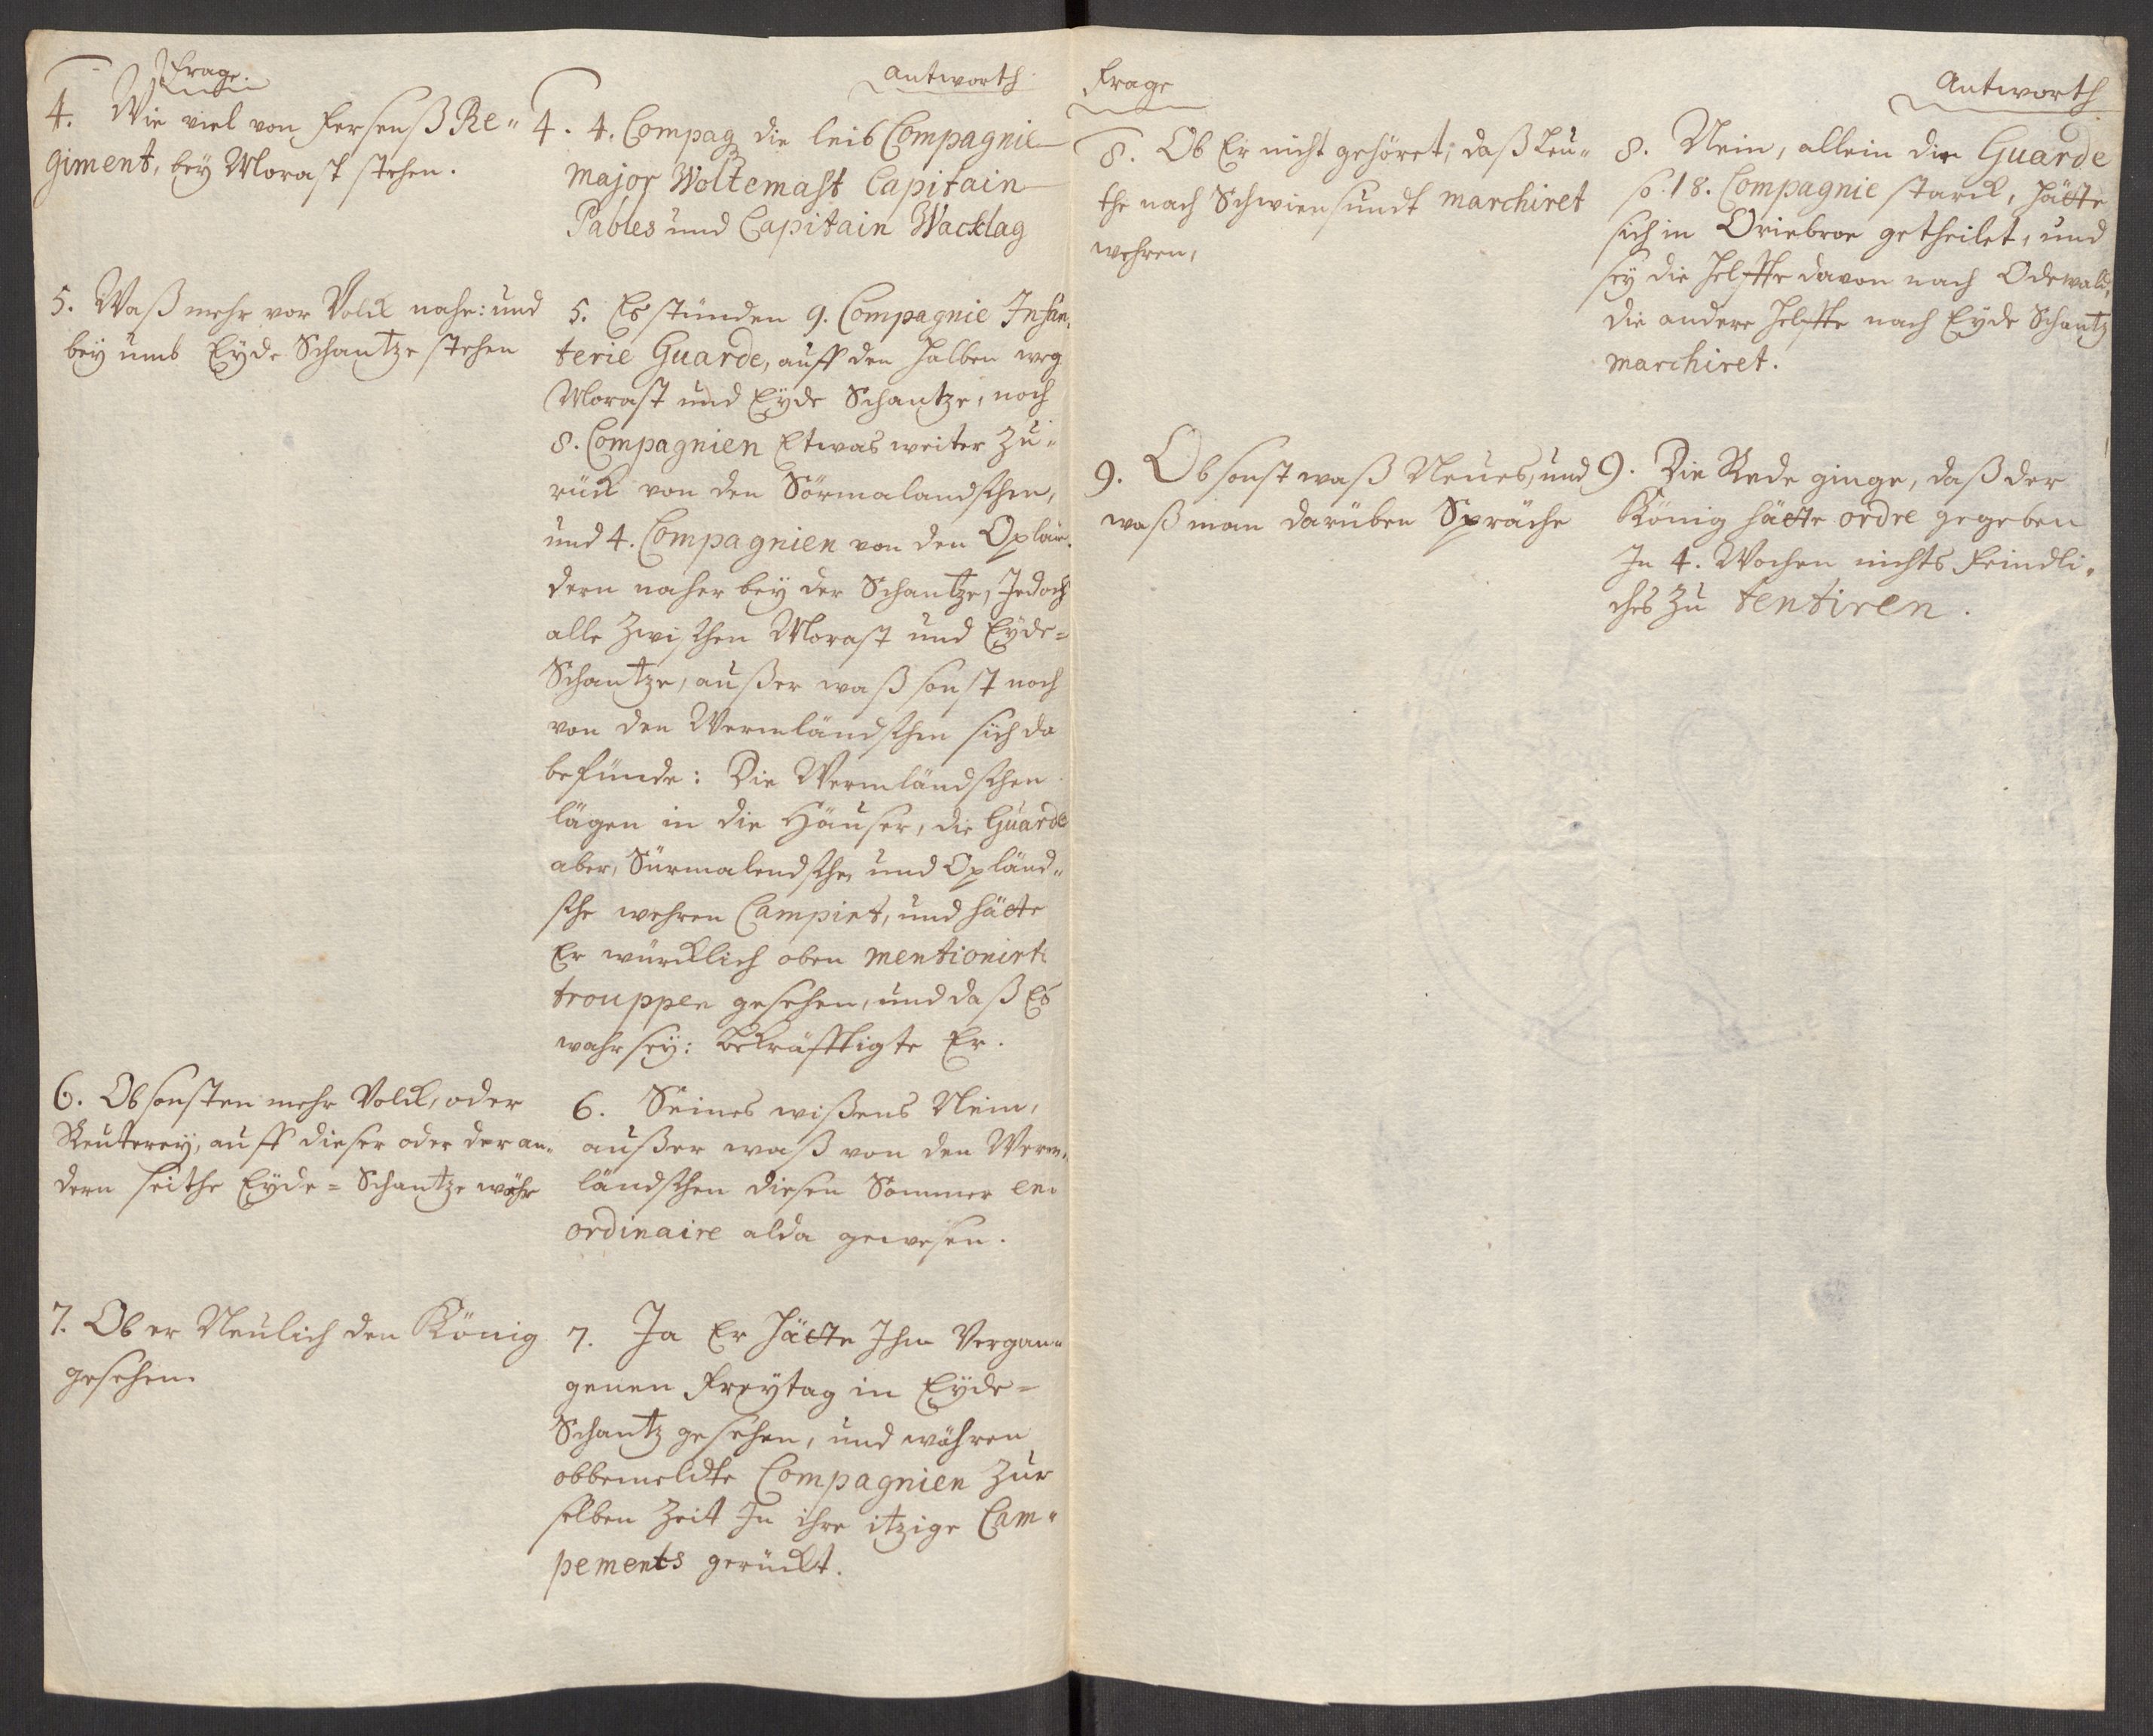 Frage.
4. Wie viel von Fersenß Re-
giment, bey Morast stehen.
Antworth
4. 4. Compag die leib Compagnie
Major Woltemaht Capitain
Pables und Capitain Wacklag
5. Waß mehr vor Volck nahe: und
bey umb Eyde Schantze stehen
5. Es stünden 9. Compagnie Infan-
terie Guarde, auff den halben weg
Morast und Eyde Schantze, noch
8. Compagnien Etwas weiter zu-
rück von den Sörmalandschen,
und 4. Compagnien von den Oplän-
dern naher bey der Schantze, Jedoch
alle zwischen Morast und Eyde-
Schantze, außer waß sonst noch
von den Wermländschen sich da
befünde: Die Wermländschen
lägen in die Häuser, die Guarde
aber, Sürmalendsche, und Opländ-
sche wehren Campirt, und hätte
Er würcklich oben mentionirt
trouppen gesehen, und daß Es
wahr sey: bekräfftigte Er.
6. Ob sonsten mehr Volck, oder
Reuterey, auff dieser oder der an-
dern seithe Eyde-Schantze währe
6. Seines wißens Nein,
außer waß von den Werm-
ländschen diesen Sommer en
ordinaire alda gewesen.
7. Ob er Neulich den König
gesehen.
7. Ja Er hätte Ihm Vergan-
genen Freytag in Eyde-
Schantz gesehen, und währen
obbemeldte Compagnien zur
selben Zeit In ihre itzige Cam-
pements gerückt.
Frage
8. Ob Er nicht gehöret, daß Leu-
the nach Schwiensundt marchiret
wehren,
Antworth
8. Nein, allein die Guarde
so 18. Compagnie starck, hätte
sich in Oriebroe getheilet, und
sey die helffte davon nach Odewald,
die andere helffte nach Eyde Schantz
marchiret.
9. Ob sonst waß Neues, und
waß man darüben Spräche
9. Die Rede ginge, daß der
König hätte ordre gegeben
In 4. Wochen nichts Feindli-
ches zu tentiren.